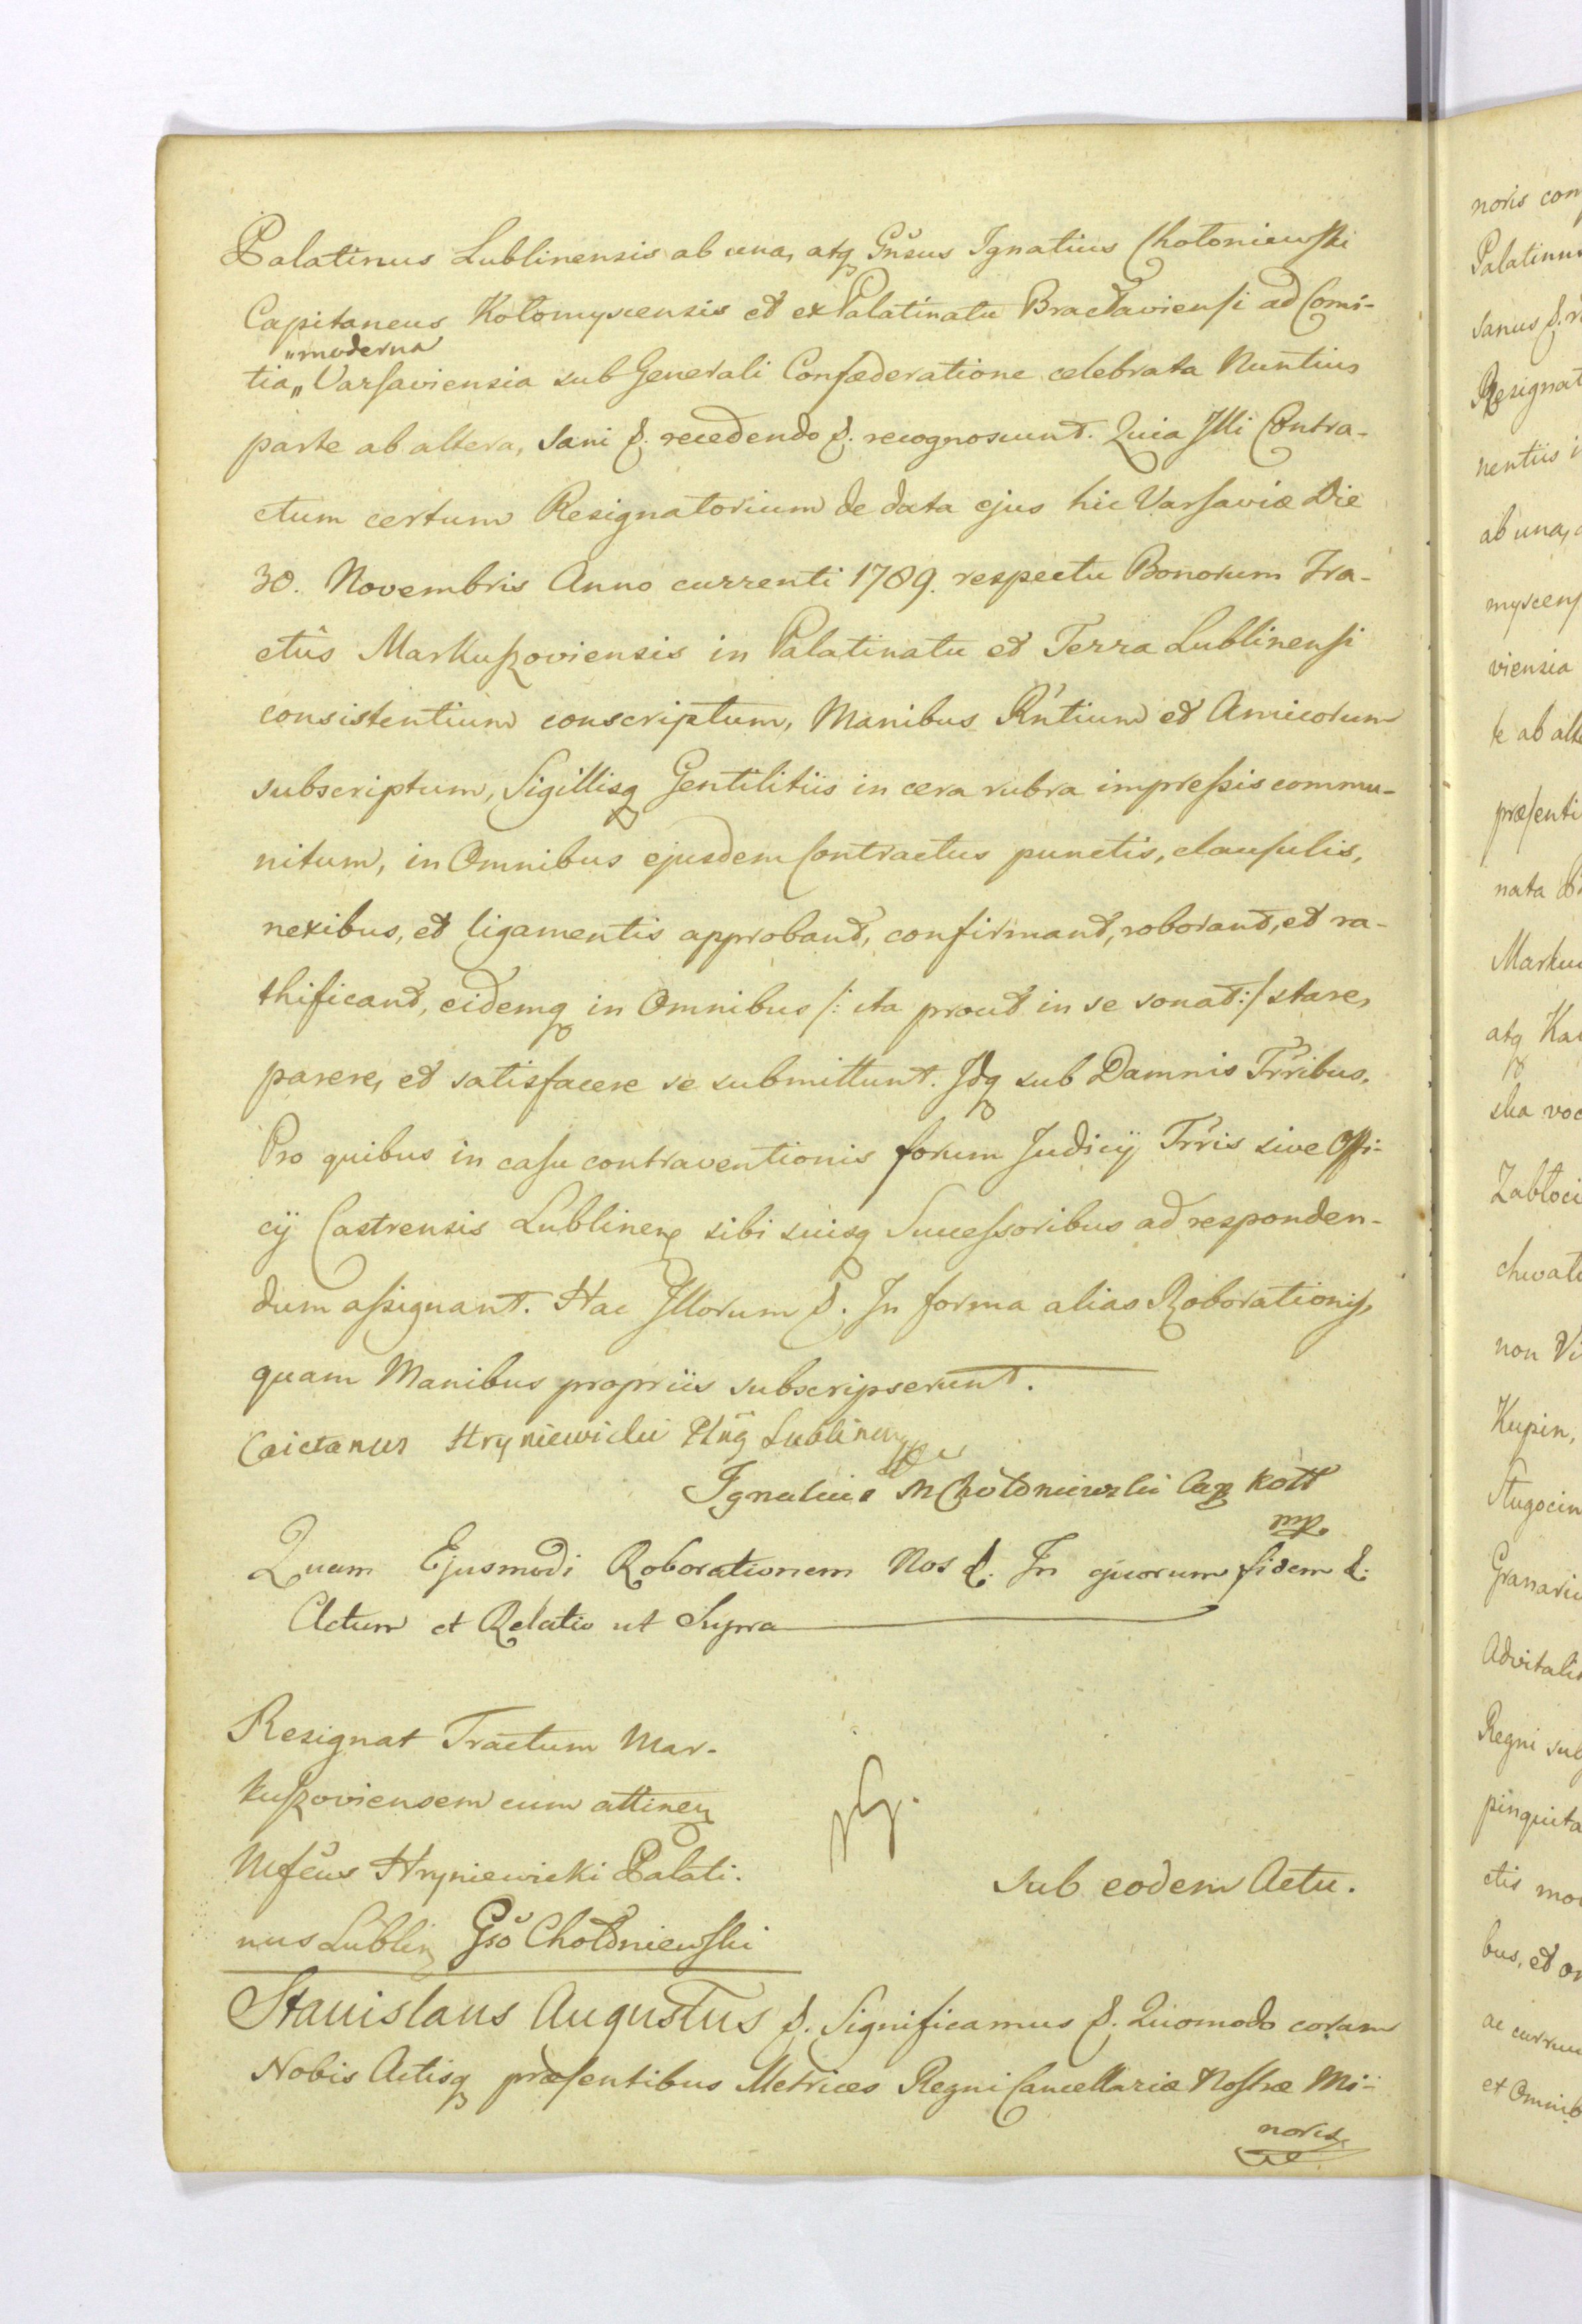 Palatinus Lublinensis ab una, atq Gnsus Ignatius Chołoniewski
Capitaneus Kołomyscensis et ex Palatinatu Bracłaviensi ad Comi-
"moderna
tia" Varsaviensia sub Generali Confæderatione celebrata Nuntius
parte ab altera, sani &. recedendo &. recognoscunt. Quia Illi Contra-
ctum certum Resignatorium de data ejus hic Varsaviæ Die
30. Novembris Anno currenti 1789. respectu Bonorum Tra-
ctûs Markuszoviensis in Palatinatu et Terra Lublinensi
consistentium conscriptum, Manibus Rntium et Amicorum
subscriptum, Sigillisq Gentilitiis in cera rubra impressis commu-
nitum, in Omnibus ejusdem Contractus punctis, clausulis,
nexibus, et ligamentis approbant, confirmant, roborant, et ra-
thificant, eidemq in Omnibus /: ita prout in se sonat :/ stare,
parere, et satisfacere se submittunt. Idq sub Damnis Trribus.
Pro quibus in casu contraventionis forum Judicij Trris sive Offi-
cij Castrensis Lublinen sibi suisq Successoribus ad responden-
dum assignant. Hac Illorum &. In forma alias Roborationis,
quam Manibus propriis subscripserunt.
Caietanus Hryniewicki Plng Lublinen
Ignatius Chołoniewski Cap Koll
mp.
Quam Ejusmodi Roborationem Nos &. In quorum fidem &.
Actum et Relatio ut Supra
Resignat Tractum Mar-
kuszoviensem cum attinen
Mfcus Hryniewicki Palati-
nus Lublin Gso Chołoniewski
Sub eodem Actu.
Stanislaus Augustus &. Significamus &. Quomodo coram
Nobis Actisq præsentibus Metrices Regni Cancellariæ Nostræ Mi-
noris
noris con
Palatinus
sanus &. r
Resignat
nentiis i
ab una,
myscens
viensia
te ab alte
præsenti
nata
Marku
atq Ka
ska voc
Zabłoci
chwato
non Vi
Kupin,
Stugocin
Granariu
Advitalit
Regni sub
pinquita
ctis mo
bus, et o
ac curru
et Omnib